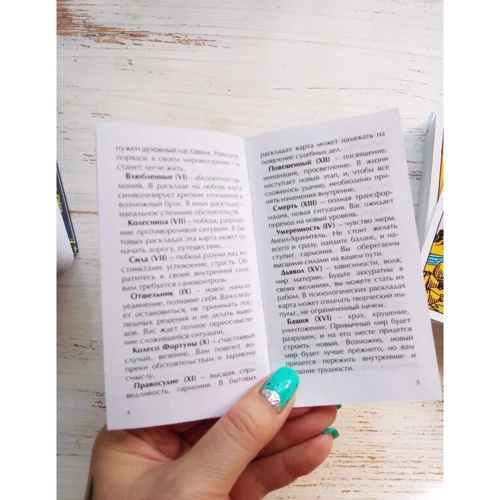 нужен духовный наставник. Наведите
порядок в своем мировоззрении - и
станет легче жить.
Влюбленные (VI) - абсолютная гар-
мония. В раскладе на любовь карта
символизирует крепкие отношения и
возможный брак. В иных раскладах -
идеальное стечение обстоятельств.
Колесница (VII) - победа, разреше-
ние противоречивой ситуации. В бы-
товых раскладах эта карта может оз-
начать дорогу, путешествие.
Сила (VII) - победа разума над ин-
стинктами, успокоение, страсть. Об-
ратитесь к своей внутренней силе,
вам требуется самоконтроль.
Отшельник (IX) - новое начало,
уединение, познание себя. Вам следу-
ет остановиться, не принимать пос-
пешных решений и не делать выво-
дов. Вас ждет полное переосмысле-
ние сложившейся ситуации.
Колесо Фортуны (X) - счастливый
случай, везение. Вам повезет во-
преки обстоятельствам и здравому
смыслу.
Правосудие (XI) - высшая спра-
ведливость, гармония. В бытовых
4
раскладах карта может намекать на
появление судебных дел.
Повешенный (XII) - посвящение,
инициация, просветление. В жизни
наступает новый этап, и, чтобы все
сложилось удачно, необходимо при-
нять изменения внутренне.
Смерть (XIII) - полная трансфор-
мация, новая ситуация. Вас ожидает
переход на новый уровень.
Умеренность (IV) - чувство меры,
Ангел-Хранитель. Не стоит желать
всего и сразу, найдите баланс, и на-
ступит гармония. Вы оберегаемы
высшими силами на вашем пути.
Дьявол (XV) - зависимости, воля,
мир материи. Будьте аккуратны в
своих желаниях, вы можете стать их
рабом. В психологических раскладах
карта может означать творческий им-
пульс, не имеющий ограничений.
Башня (XVI) - крах, крушение,
уничтожение. Привычный мир будет
разрушен, и на его месте придется
строить новый. Возможно, новый
мир будет лучше прежнего, но вам
придется пережить внутренние и
внешние трудности.
5